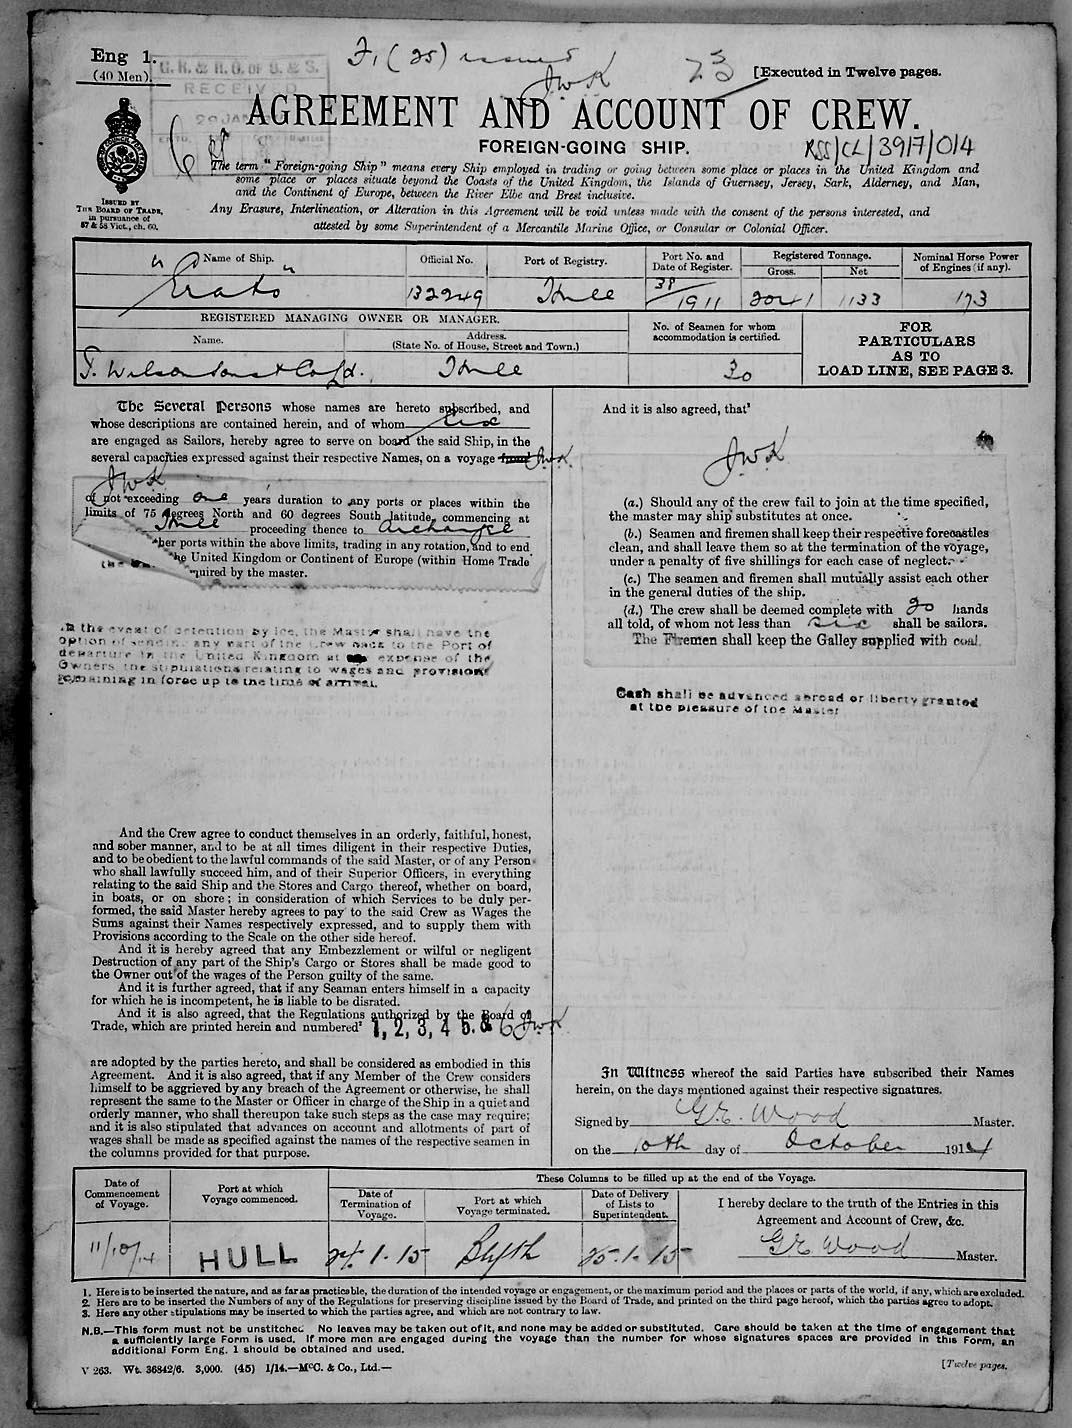 Eng 1.
(40 Men).
F, (25) issued
JWK
23
[Executed in Twelve pages.
G. R. & R. O. OF S. & S.
RECEIVED
AGREEMENT AND ACCOUNT OF CREW.
FOREIGN-GOING SHIP.
RSS/CL/3917/014
ISSUED BY
THE BOARD OF TRADE,
in pursuance of
57 & 58 Vict., ch. 60.
The term "Foreign-going Ship" means every Ship employed in trading or going between some place or places in the United Kingdom and
some place or places situate beyond the Coasts of the United Kingdom, the Islands of Guernsey, Jersey, Sark, Alderney, and Man,
and the Continent of Europe, between the River Elbe and Brest inclusive.
Any Erasure, Interlineation, or Alteration in this Agreement will be void unless made with the consent of the persons interested, and
attested by some Superintendent of a Mercantile Marine Office, or Consular or Colonial Officer.
Name of Ship. Official No. Port of Registry. Port No. and Date of Register. Registered Tonnage. Gross. Net Nominal Horse Power of Engines (if any).
"Erato" 132249 Hull 38/1911 2041 1133 173
REGISTERED MANAGING OWNER OR MANAGER.
Name. Address. (State No. of House, Street and Town.)
No. of Seamen for whom accommodation is certified.
T. Wilson Sons & Co Ld. Hull 30
FOR
PARTICULARS
AS TO
LOAD LINE, SEE PAGE 3.
The Several Persons whose names are hereto subscribed, and
whose descriptions are contained herein, and of whom six
are engaged as Sailors, hereby agree to serve on board the said Ship, in the
several capacities expressed against their respective Names, on a voyage from JWK
JWK
of not exceeding one years duration to any ports or places within the
limits of 75 degrees North and 60 degrees South latitude, commencing at
Hull proceeding thence to Archangel
ther ports within the above limits, trading in any rotation, and to end
the United Kingdom or Continent of Europe (within Home Trade
quired by the master.
In the event of detention by ice, the Master shall have the
option of sending any part of the crew back to the Port of
departure in the United Kingdom at expense of the
Owners, the stipulations relating to wages and provisions
remaining in force up to the time of arrival.
And the Crew agree to conduct themselves in an orderly, faithful, honest,
and sober manner, and to be at all times diligent in their respective Duties,
and to be obedient to the lawful commands of the said Master, or of any Person
who shall lawfully succeed him, and of their Superior Officers, in everything
relating to the said Ship and the Stores and Cargo thereof, whether on board,
in boats, or on shore; in consideration of which Services to be duly per-
formed, the said Master hereby agrees to pay to the said Crew as Wages the
Sums against their Names respectively expressed, and to supply them with
Provisions according to the Scale on the other side hereof.
And it is hereby agreed that any Embezzlement or wilful or negligent
Destruction of any part of the Ship's Cargo or Stores shall be made good to
the Owner out of the wages of the Person guilty of the same.
And it is further agreed, that if any Seaman enters himself in a capacity
for which he is incompetent, he is liable to be disrated.
And it is also agreed, that the Regulations authorized by the Board of
Trade, which are printed herein and numbered² 1, 2, 3, 4 5. & 6 JWK
are adopted by the parties hereto, and shall be considered as embodied in this
Agreement. And it is also agreed, that if any Member of the Crew considers
himself to be aggrieved by any breach of the Agreement or otherwise, he shall
represent the same to the Master or Officer in charge of the Ship in a quiet and
orderly manner, who shall thereupon take such steps as the case may require;
and it is also stipulated that advances on account and allotments of part of
wages shall be made as specified against the names of the respective seamen in
the columns provided for that purpose.
And it is also agreed, that³
JWK
(a.) Should any of the crew fail to join at the time specified,
the master may ship substitutes at once.
(b.) Seamen and firemen shall keep their respective forecastles
clean, and shall leave them so at the termination of the voyage,
under a penalty of five shillings for each case of neglect.
(c.) The seamen and firemen shall mutually assist each other
in the general duties of the ship.
(d.) The crew shall be deemed complete with 20 hands
all told, of whom not less than six shall be sailors.
The Firemen shall keep the Galley supplied with coal.
Cash shall be advanced abroad or liberty granted
at the pleasure of the Master
In Witness whereof the said Parties have subscribed their Names
herein, on the days mentioned against their respective signatures.
Signed by G.E. Wood Master.
on the 10th day of October 1914
Date of Commencement of Voyage. Port at which Voyage commenced. These Columns to be filled up at the end of the Voyage.
Date of Termination of Voyage. Port at which Voyage terminated. Date of Delivery of Lists to Superintendent.
I hereby declare to the truth of the Entries in this
Agreement and Account of Crew, &c.
11/10/14 HULL 24.1.15 Blyth 25.1.15 G.E. Wood Master.
1. Here is to be inserted the nature, and as far as practicable, the duration of the intended voyage or engagement, or the maximum period and the places or parts of the world, if any, which are excluded.
2. Here are to be inserted the Numbers of any of the Regulations for preserving discipline issued by the Board of Trade, and printed on the third page hereof, which the parties agree to adopt.
3. Here any other stipulations may be inserted to which the parties agree, and which are not contrary to law.
N.B.—This form must not be unstitched. No leaves may be taken out of it, and none may be added or substituted. Care should be taken at the time of engagement that
a sufficiently large Form is used. If more men are engaged during the voyage than the number for whose signatures spaces are provided in this Form, an
additional Form Eng. 1 should be obtained and used.
V 263. Wt. 36842/6. 3,000. (45) 1/14.—McC. & Co., Ltd.—
[Twelve pages.